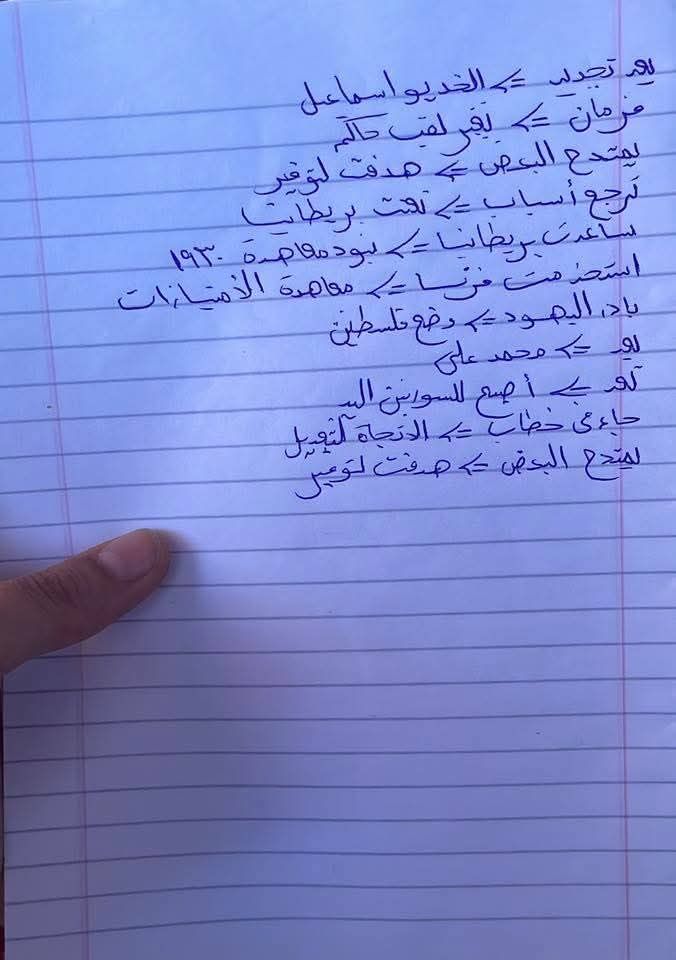 يعد تجديد => الخديو اسماعيل
فرمان => تغير لقب حاكم
يمتدح البعض => هدفت لتوفير
ترجع أسباب => تفتت بريطانيا
ساعدت بريطانيا => بنود معاهدة ١٩٣٠
استخدمت فرنسا => معاهدة الأمتيازات
بادر اليهود => وضع فلسطين
يعد => محمد على
تعد => أصبح للسوريين اليد
جاء في خطاب => الاتجاة لتعديل
يمتدح البعض => هدفت لتوفير